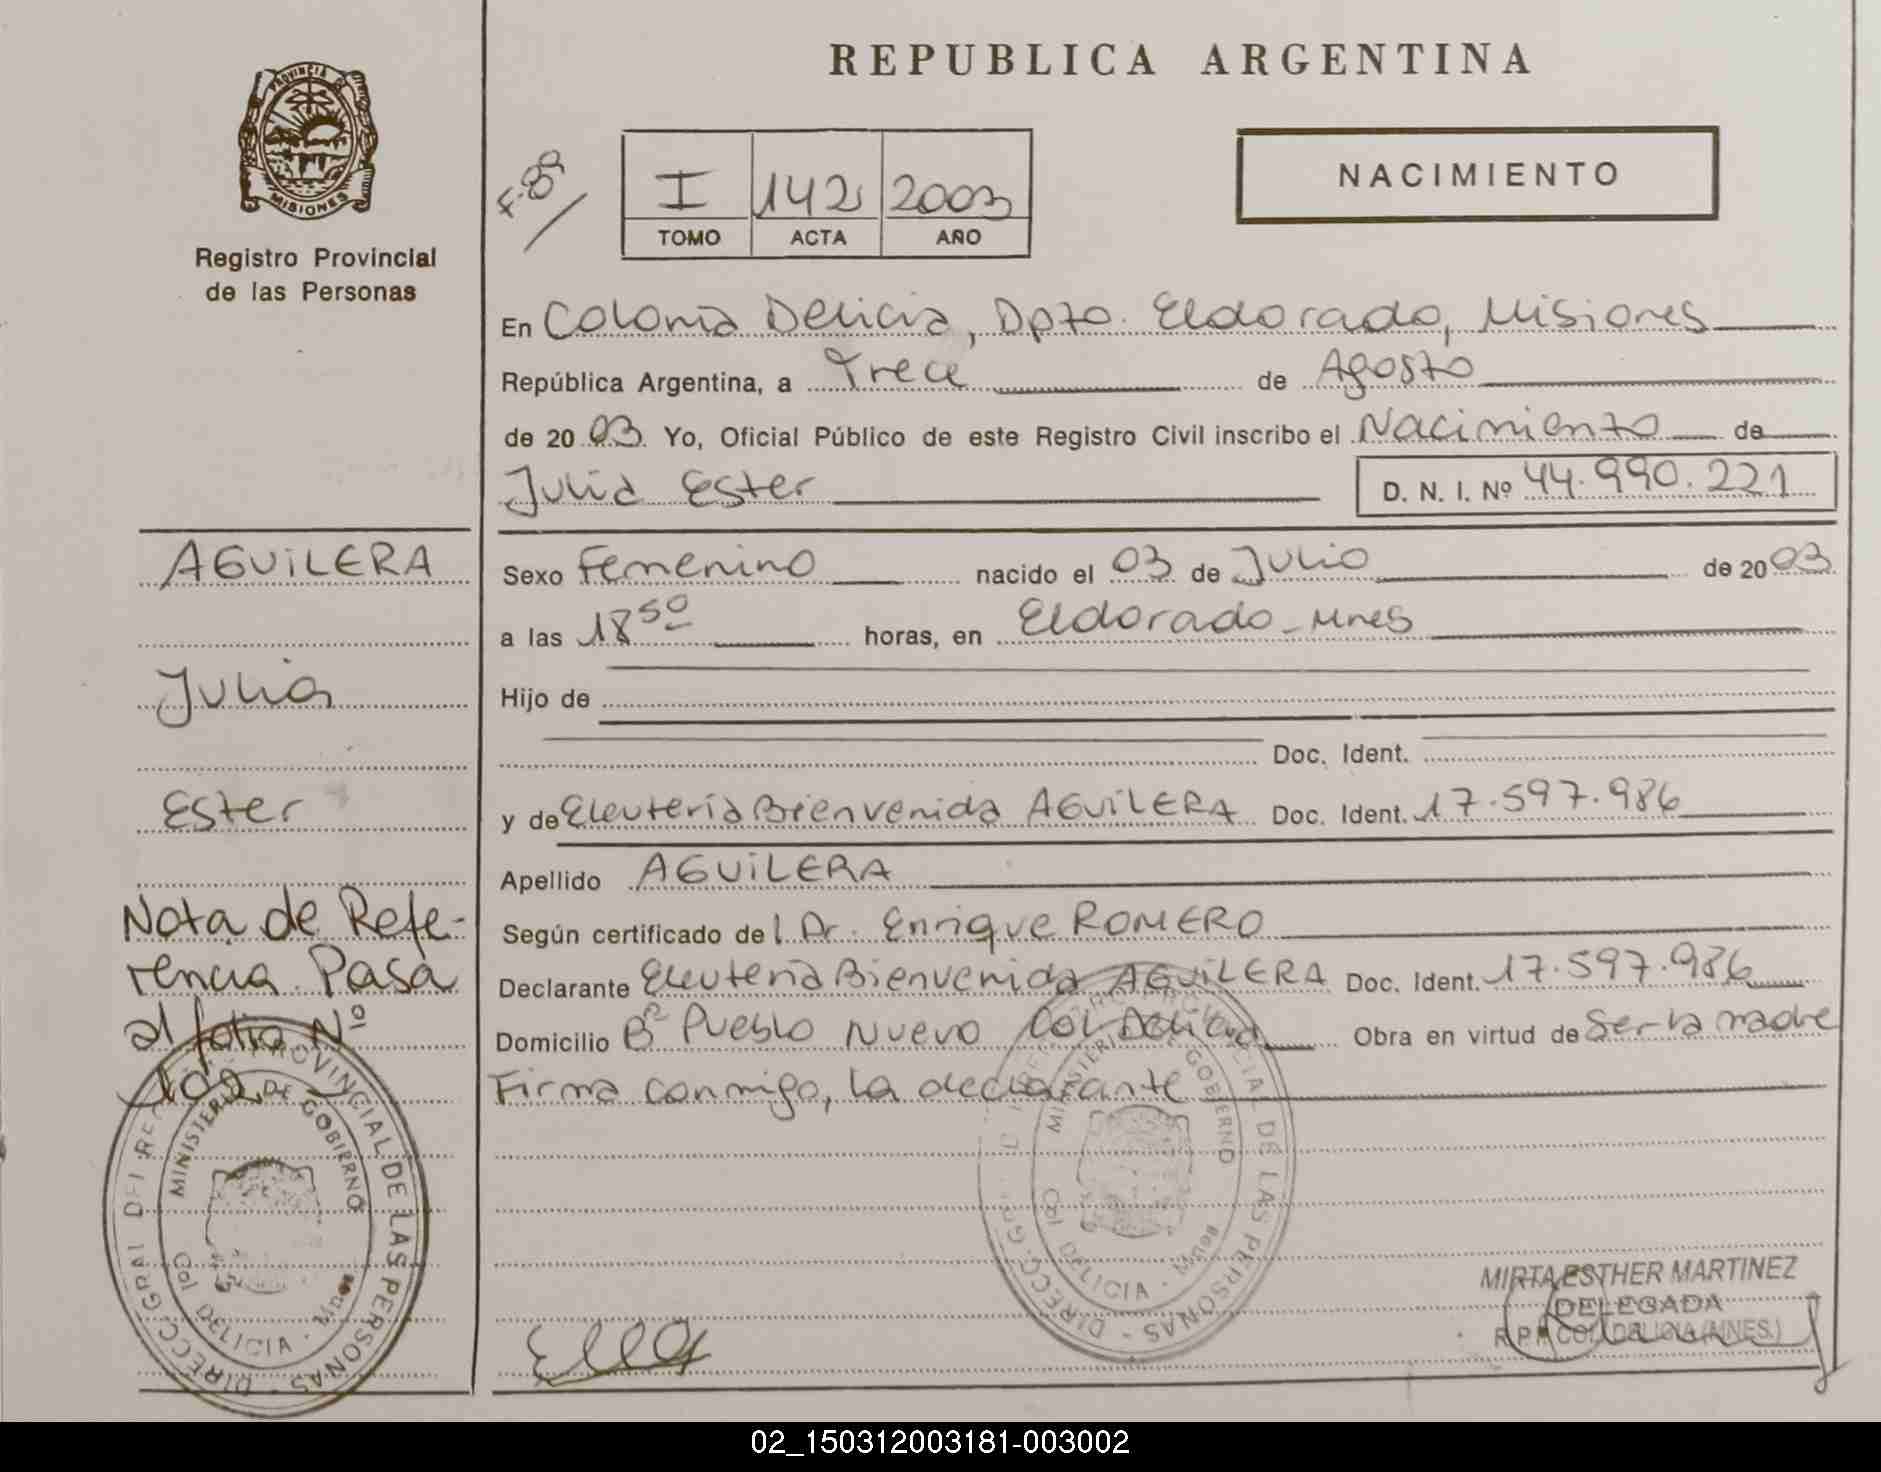 REPUBLICA ARGENTINA
PROVINCIA
MISIONES
Registro Provincial
de las Personas
F-89
I 142 2003
TOMO ACTA AÑO
NACIMIENTO
En Colonia Delicia, Dpto. Eldorado, Misiones
República Argentina, a Trece de Agosto
de 2003. Yo, Oficial Público de este Registro Civil inscribo el Nacimiento de
Julia Ester
D. N. I. Nº 44.990.221
AGUILERA
Julia
Ester
Nota de Refe-
rencia. Pasa
al folio Nº
102
Sexo Femenino nacido el 03 de Julio de 2003
a las 18 50 horas, en Eldorado - Mnes
Hijo de
Doc. Ident.
y de Eleuteria Bienvenida AGUILERA Doc. Ident. 17.597.986
Apellido AGUILERA
Según certificado del Dr. Enrique ROMERO
Declarante Eleuteria Bienvenida AGUILERA Doc. Ident. 17.597.986
Domicilio Bº Pueblo Nuevo Col. Delicia Obra en virtud de Ser la madre
Firma conmigo, la declarante
DIRECC. GRAL DEL REG. PROVINCIAL DE LAS PERSONAS
MINISTERIO DE GOBIERNO
Col DELICIA - Mnes
DIRECC. GRAL PROVINCIAL DE LAS PERSONAS
MINISTERIO DE GOBIERNO
Col DELICIA - Mnes
MIRTA ESTHER MARTINEZ
DELEGADA
R.P.P. COL. DELICIA (MNES.)
02_150312003181-003002